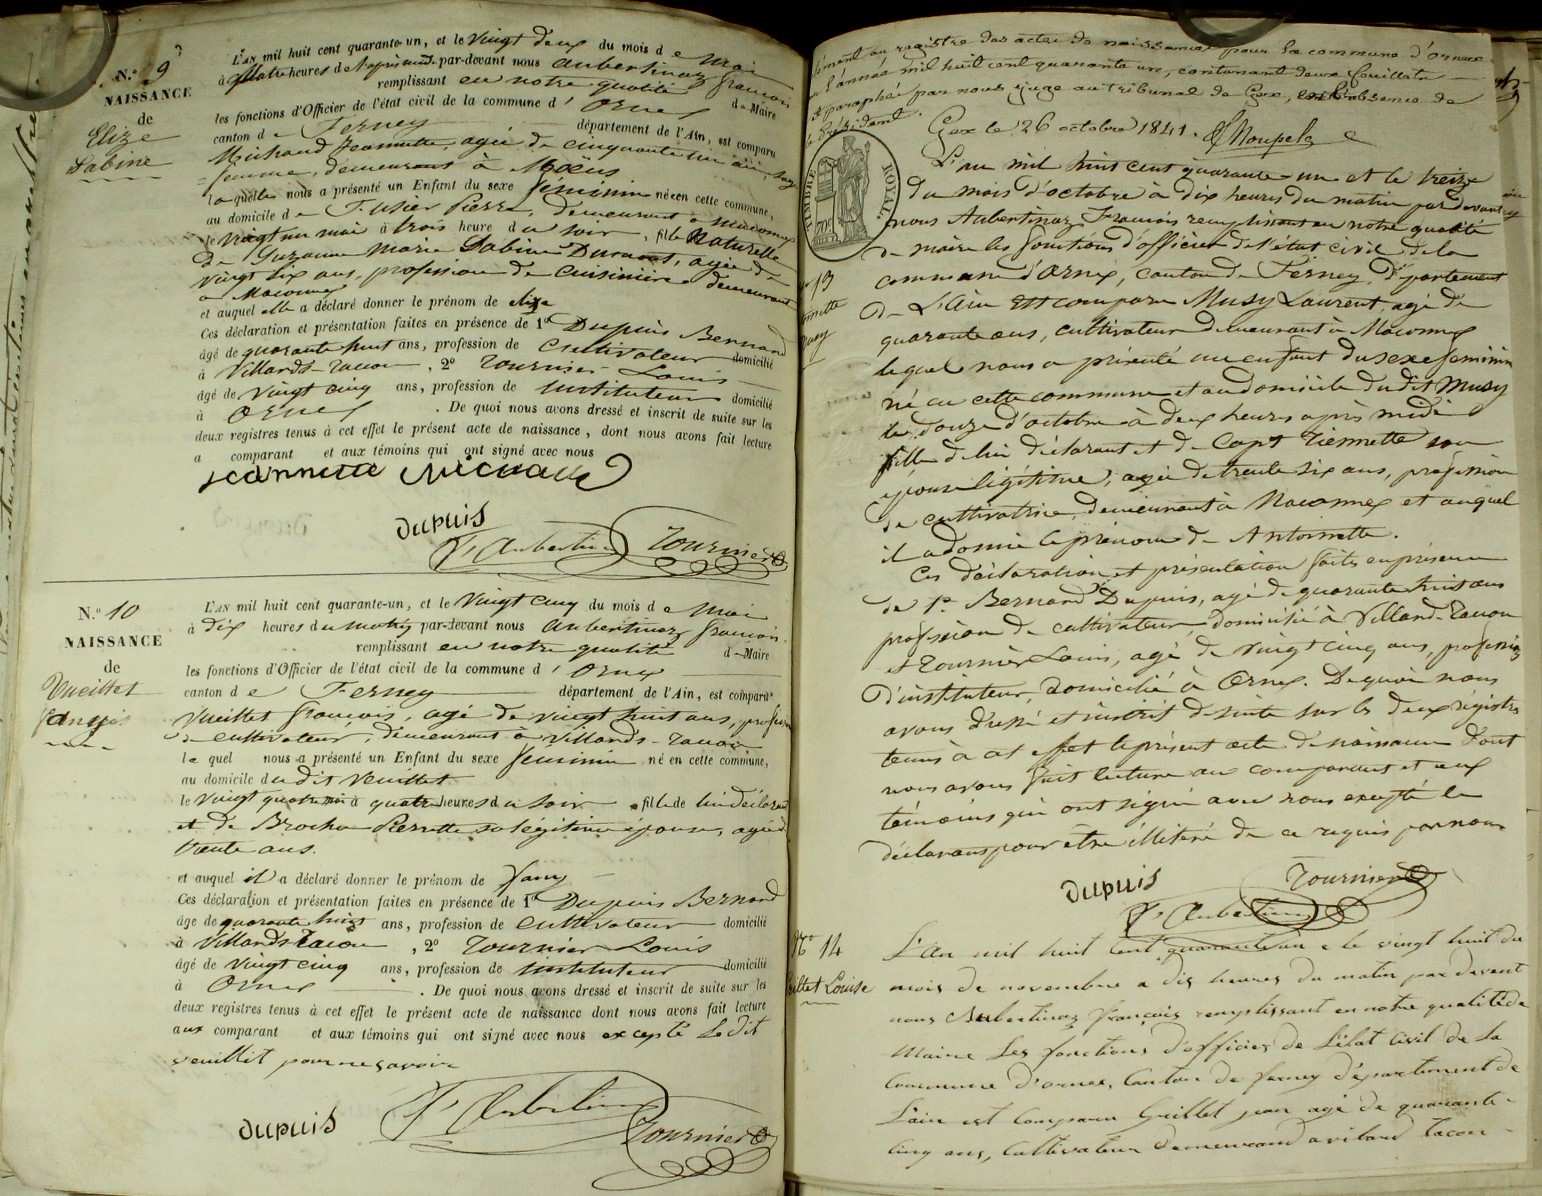 N.° 9
NAISSANCE
de
Elize
Sabine
L'AN mil huit cent quarante-un, et le vingt deux du mois de Mai
à quatre heures de l'après midi par-devant nous Aubertinaz françois
remplissant en notre qualité de Maire
les fonctions d'Officier de l'état civil de la commune d'Ornex
canton de Ferney département de l'Ain, est comparu
Michaud Jeannette, agée de cinquante un an, sage
= femme, demeurant à Moëns
laquelle nous a présenté un Enfant du sexe féminin né en cette commune,
au domicile de Pierre, demeurant à Maconnex
le vingt un mai à trois heure du soir, fille Naturelle
de Suzanne Marie Sabine Durant, agée de
vingt six ans, profession de cuisinière demeurant
a Maconnex
et auquel elle a déclaré donner le prénom de elize
Ces déclaration et présentation faites en présence de 1° Dupuis Bernard
âgé de quarante huit ans, profession de Cultivateur domicilié
à Villards-Tacon, 2° Tournier Louis
âgé de vingt cinq ans, profession de Instituteur domicilié
à Ornex. De quoi nous avons dressé et inscrit de suite sur les
deux registres tenus à cet effet le présent acte de naissance, dont nous avons fait lecture
a comparant et aux témoins qui ont signé avec nous
jeannette Michaud
Dupuis
F. Aubertin Tournier
N.° 10
NAISSANCE
de
Vueillet
fanny
L'AN mil huit cent quarante-un, et le vingt cinq du mois de Mai
à dix heures du matin par-devant nous Aubertinaz françois
remplissant en notre qualité de Maire
les fonctions d'Officier de l'état civil de la commune d'Ornex
canton de Ferney département de l'Ain, est comparu
Vueillet françois, agé de vingt huit ans, profession
de cultivateur, demeurant à Villards-Tacon
lequel nous a présenté un Enfant du sexe féminin né en cette commune,
au domicile dudit Veuillet
le vingt quatre mai à quatre heures du soir fille de lui déclarant
et de Brochu Pierrette sa légitime épouse, agée de
trente ans.
et auquel il a déclaré donner le prénom de fany
Ces déclaration et présentation faites en présence de 1° Dupuis Bernard
âgé de quarante huit ans, profession de cultivateur domicilié
à Villards Tacon, 2° Tournier Louis
âgé de vingt cinq ans, profession de instituteur domicilié
à Ornex. De quoi nous avons dressé et inscrit de suite sur les
deux registres tenus à cet effet le présent acte de naissance dont nous avons fait lecture
aux comparant et aux témoins qui ont signé avec nous excepté Ledit
veuillet pour ne savoir
Dupuis F. Aubertin Tournier
au registre des actes de naissances pour la commune d'ornex
l'année mil huit cent quarante un, contenant deux feuillets
et paraphé par nous juge au tribunal de Gex, en l'absence de
Président.
Gex le 26 octobre 1841.
TIMBRE ROYAL
L'an mil huit cent quarante-un et le treize
du mois d'octobre à dix heures du matin par devant
nous Aubertinaz François remplissant en notre qualité
de maire les fonctions d'officier de l'état civil de la
commune d'Ornex, canton de Ferney, Département
de L'Ain est comparu Musy Laurent agé de
quarante ans, cultivateur demeurant à Maconnex
lequel nous a présenté un enfant du sexe féminin
né en cette commune et au domicile dudit Musy
le douze d'octobre à deux heures après midi
fille de lui déclarant et de Capt Tiennette son
épouse légitime, agée de trente six ans, profession
de cultivatrice, demeurant à Maconnex et auquel
il a donné le prénom de Antoinette.
Ces déclaration et présentation faites en présence
de 1° Bernard Dupuis, agé de quarante huit ans
profession de cultivateur domicilié à Villard-Tacon
et Tournier Louis, agé de vingt cinq ans, profession
d'instituteur, domicilié à Ornex. De quoi nous
avons dressé et inscrit de suite sur les deux régistres
tenus à cet effet le présent acte de naissance dont
nous avons fait lecture au comparant et aux
témoins qui ont signé avec nous excepté le
déclarant pour être illitéré de ce requis par nous
Dupuis Tournier
F. Aubertin
N° 14
Louise
L'An mil huit cent quarante un e le vingt huit du
mois de novembre a dix heures du matin par devant
nous Aubertinaz françois remplissant en notre qualité de
Maire les fonctions d'officier de L'état Civil de La
Commune d'ornex, Canton de ferney département de
L'ain est comparu Guillet jean agé de quarante-
cinq ans, Cultivateur Demeurant a vilard tacon